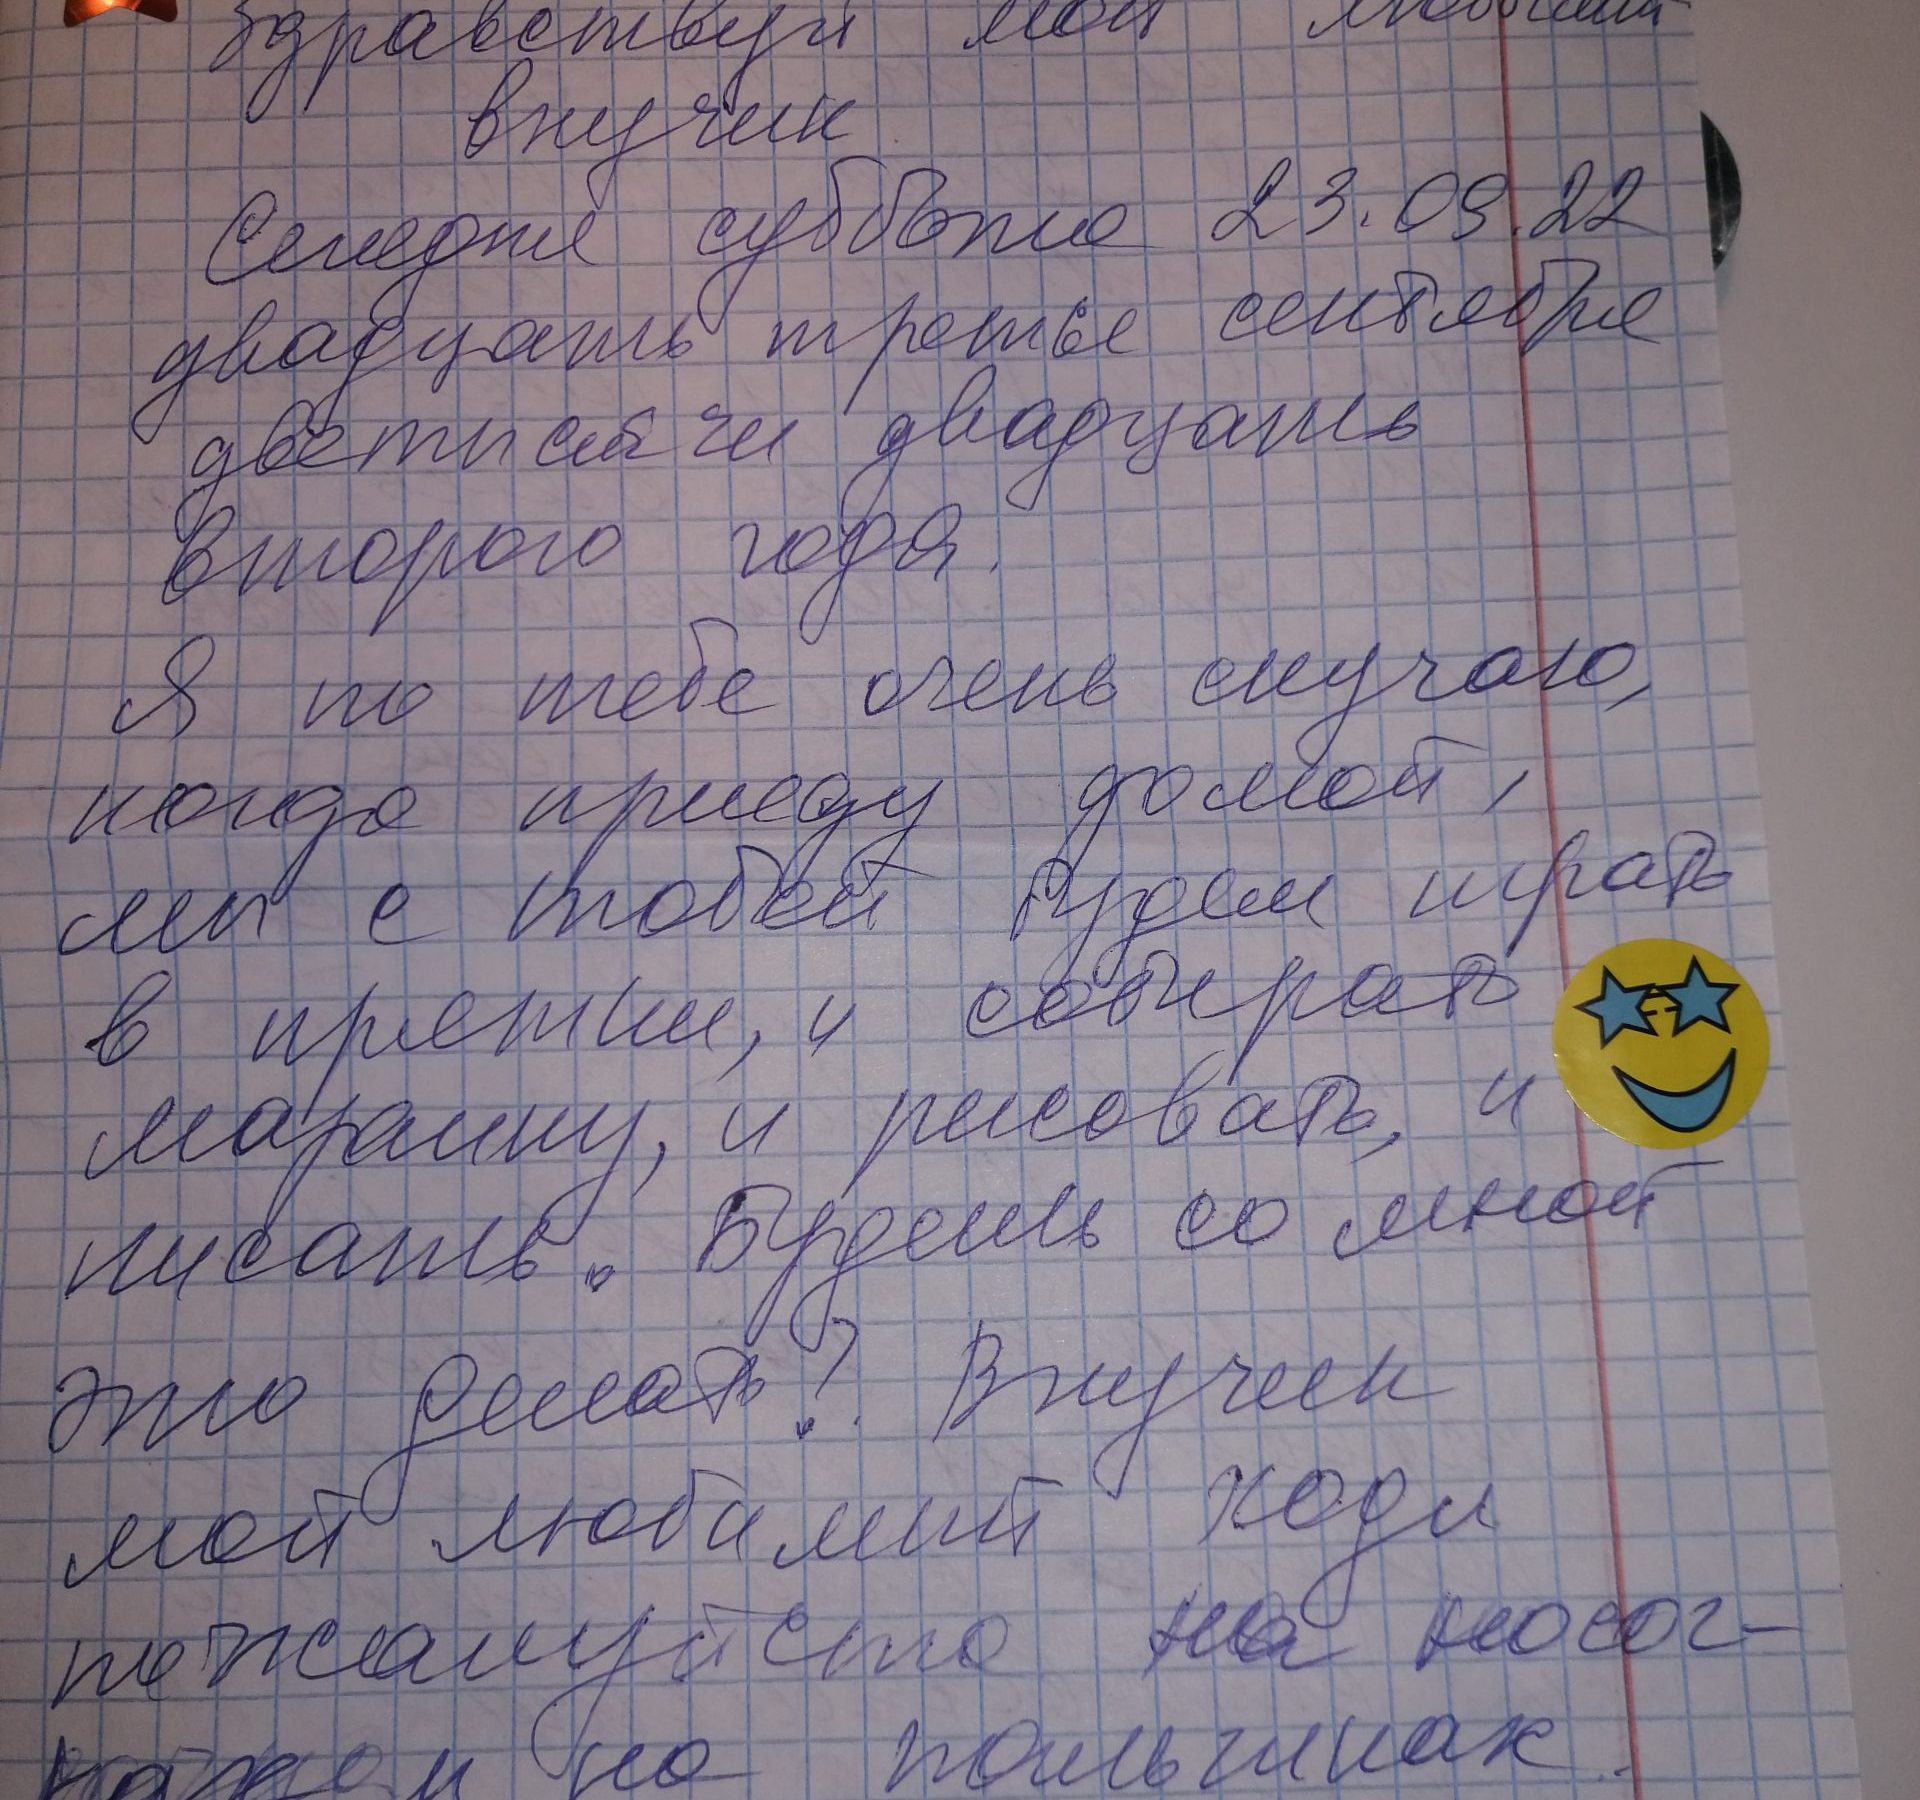 Здравствуй мой любимий
внучик
Сегодня суббота 23.09.22
двадцать третье сентября
дветысячи двадцать
второго года.
Я по тебе очень скучаю,
когда приеду домой,
мы с тобой будем играть
в прятки, и собирать
марашку, и рисовать, и
писать. Будешь со мной
это делать? Внучик
мой любимий ходи
пожалуйста на
на пальчиках.